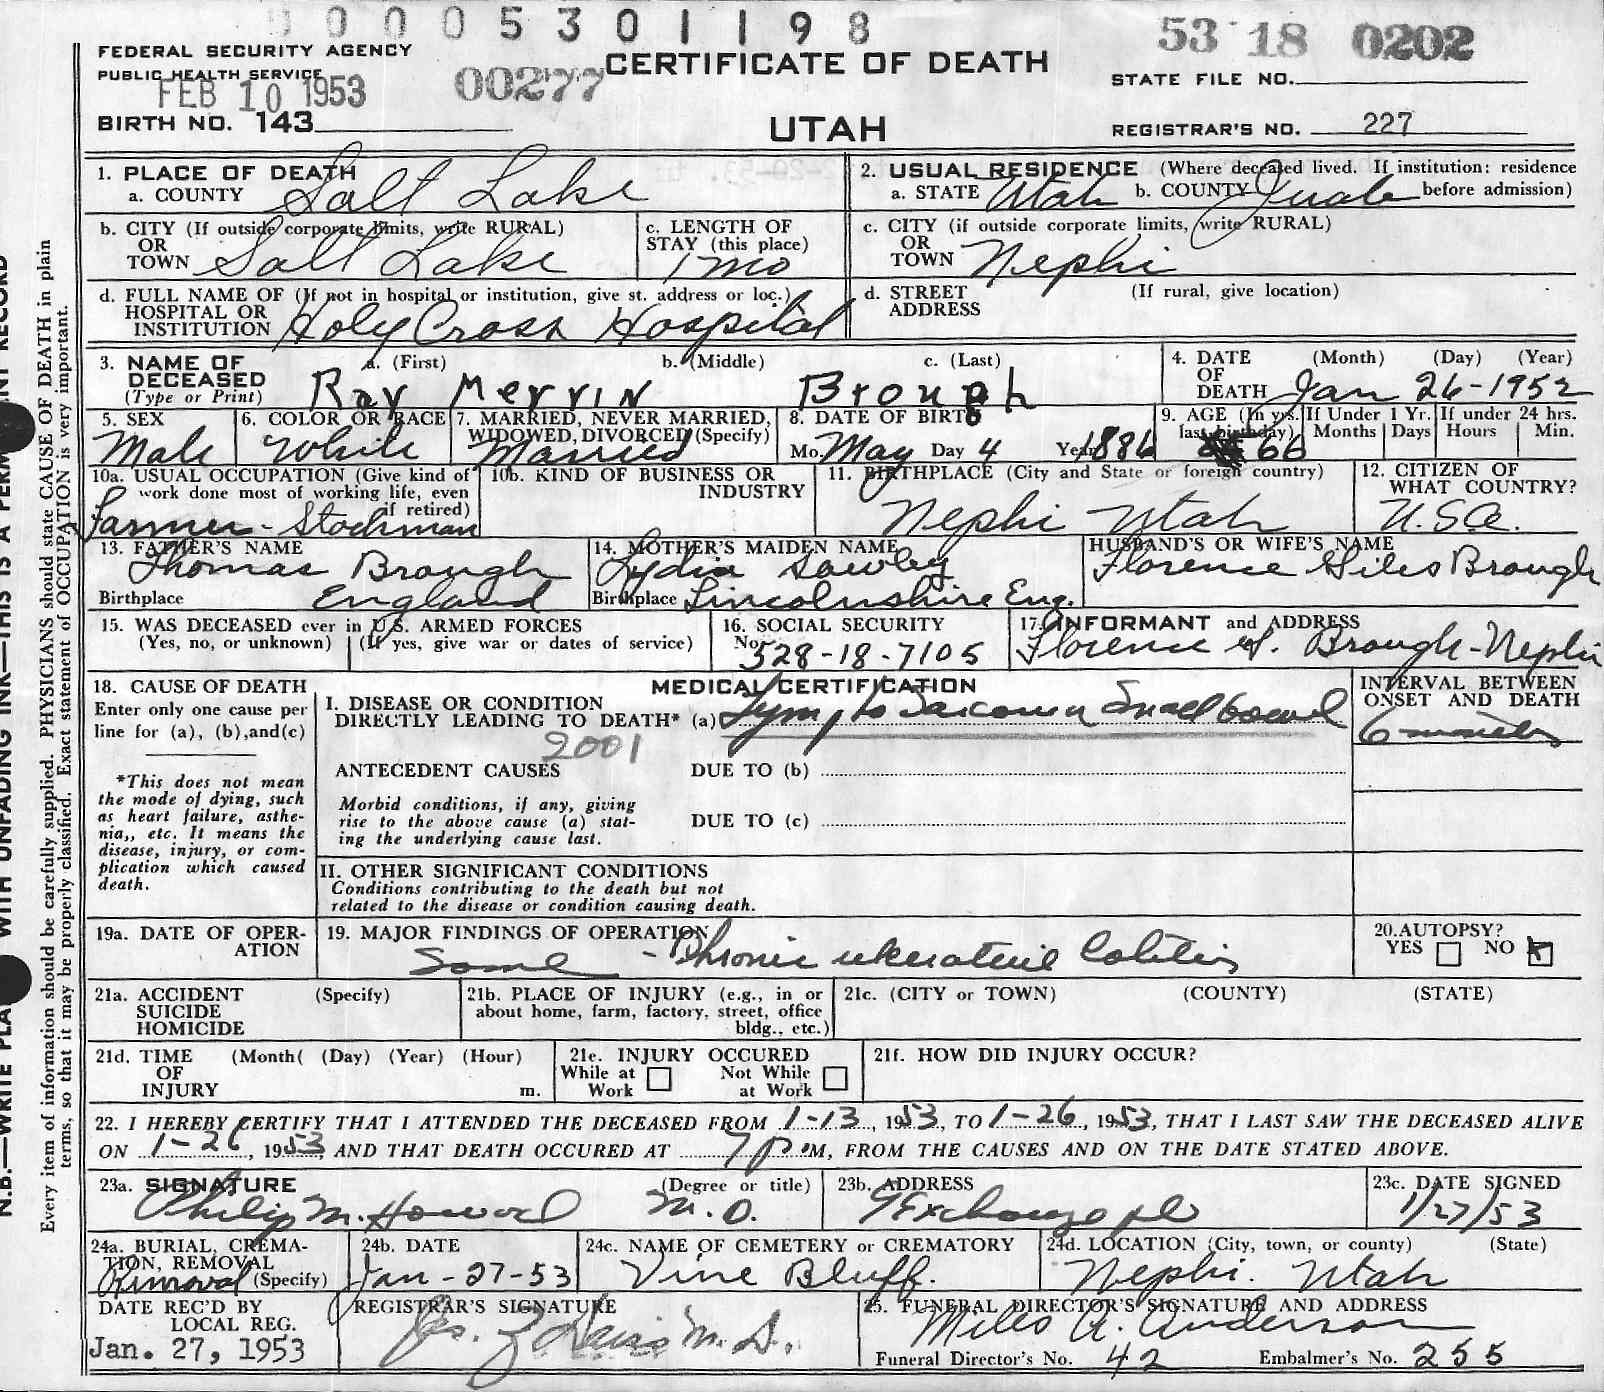 0 0 0 0 5 3 0 1 1 9 8
53 18 0202
FEDERAL SECURITY AGENCY
PUBLIC HEALTH SERVICE
FEB 10 1953
00277
CERTIFICATE OF DEATH
STATE FILE NO.
BIRTH NO. 143
UTAH
REGISTRAR'S NO. 227
1. PLACE OF DEATH
a. COUNTY Salt Lake
2. USUAL RESIDENCE (Where deceased lived. If institution: residence before admission)
a. STATE Utah b. COUNTY Juab
b. CITY (If outside corporate limits, write RURAL)
OR
TOWN Salt Lake
c. LENGTH OF
STAY (this place)
1 mo
c. CITY (if outside corporate limits, write RURAL)
OR
TOWN Nephi
d. FULL NAME OF (If not in hospital or institution, give st. address or loc.)
HOSPITAL OR
INSTITUTION Holy Cross Hospital
d. STREET (If rural, give location)
ADDRESS
3. NAME OF a. (First) b. (Middle) c. (Last)
DECEASED
(Type or Print) Ray Mervin Brough
4. DATE (Month) (Day) (Year)
OF
DEATH Jan 26-1952
5. SEX
Male
6. COLOR OR RACE
White
7. MARRIED, NEVER MARRIED,
WIDOWED, DIVORCED (Specify)
Married
8. DATE OF BIRTH
Mo. May Day 4 Year 1886
9. AGE (In yrs. last birthday) 66
If Under 1 Yr. Months Days
If under 24 hrs. Hours Min.
10a. USUAL OCCUPATION (Give kind of
work done most of working life, even
if retired)
Farmer - Stockman
10b. KIND OF BUSINESS OR
INDUSTRY
11. BIRTHPLACE (City and State or foreign country)
Nephi Utah
12. CITIZEN OF
WHAT COUNTRY?
U.S.A.
13. FATHER'S NAME
Thomas Brough
Birthplace England
14. MOTHER'S MAIDEN NAME
Lydia Sowley
Birthplace Lincolnshire Eng.
HUSBAND'S OR WIFE'S NAME
Florence Giles Brough
15. WAS DECEASED ever in U.S. ARMED FORCES
(Yes, no, or unknown) (If yes, give war or dates of service)
16. SOCIAL SECURITY
No. 528-18-7105
17. INFORMANT and ADDRESS
Florence G. Brough - Nephi
18. CAUSE OF DEATH
Enter only one cause per
line for (a), (b), and (c)
MEDICAL CERTIFICATION
INTERVAL BETWEEN
ONSET AND DEATH
I. DISEASE OR CONDITION
DIRECTLY LEADING TO DEATH* (a) Lympho Sarcoma Small bowel
6 months
2001
*This does not mean
the mode of dying, such
as heart failure, asthe-
nia,, etc. It means the
disease, injury, or com-
plication which caused
death.
ANTECEDENT CAUSES DUE TO (b)
Morbid conditions, if any, giving
rise to the above cause (a) stat-
ing the underlying cause last.
DUE TO (c)
II. OTHER SIGNIFICANT CONDITIONS
Conditions contributing to the death but not
related to the disease or condition causing death.
19a. DATE OF OPER-
ATION
19. MAJOR FINDINGS OF OPERATION
Some - Chronic ulcerative Colitis
20. AUTOPSY?
YES NO X
21a. ACCIDENT (Specify)
SUICIDE
HOMICIDE
21b. PLACE OF INJURY (e.g., in or
about home, farm, factory, street, office
bldg., etc.)
21c. (CITY or TOWN) (COUNTY) (STATE)
21d. TIME (Month( (Day) (Year) (Hour)
OF
INJURY m.
21e. INJURY OCCURED
While at Work Not While at Work
21f. HOW DID INJURY OCCUR?
22. I HEREBY CERTIFY THAT I ATTENDED THE DECEASED FROM 1-13, 1953, TO 1-26, 1953, THAT I LAST SAW THE DECEASED ALIVE
ON 1-26, 1953, AND THAT DEATH OCCURED AT 7 P.M, FROM THE CAUSES AND ON THE DATE STATED ABOVE.
23a. SIGNATURE (Degree or title)
Philip M. Howard M.D.
23b. ADDRESS
9 Exchange pl
23c. DATE SIGNED
1/27/53
24a. BURIAL, CREMA-
TION, REMOVAL
Removal (Specify)
24b. DATE
Jan-27-53
24c. NAME OF CEMETERY or CREMATORY
Vine Bluff.
24d. LOCATION (City, town, or county) (State)
Nephi. Utah
DATE REC'D BY
LOCAL REG.
Jan. 27, 1953
REGISTRAR'S SIGNATURE
M.D.
25. FUNERAL DIRECTOR'S SIGNATURE AND ADDRESS
Miles A. Anderson
Funeral Director's No. 42 Embalmer's No. 255
Every item of information should be carefully supplied. PHYSICIANS should state CAUSE OF DEATH in plain
terms, so that it may be properly classified. Exact statement of OCCUPATION is very important.